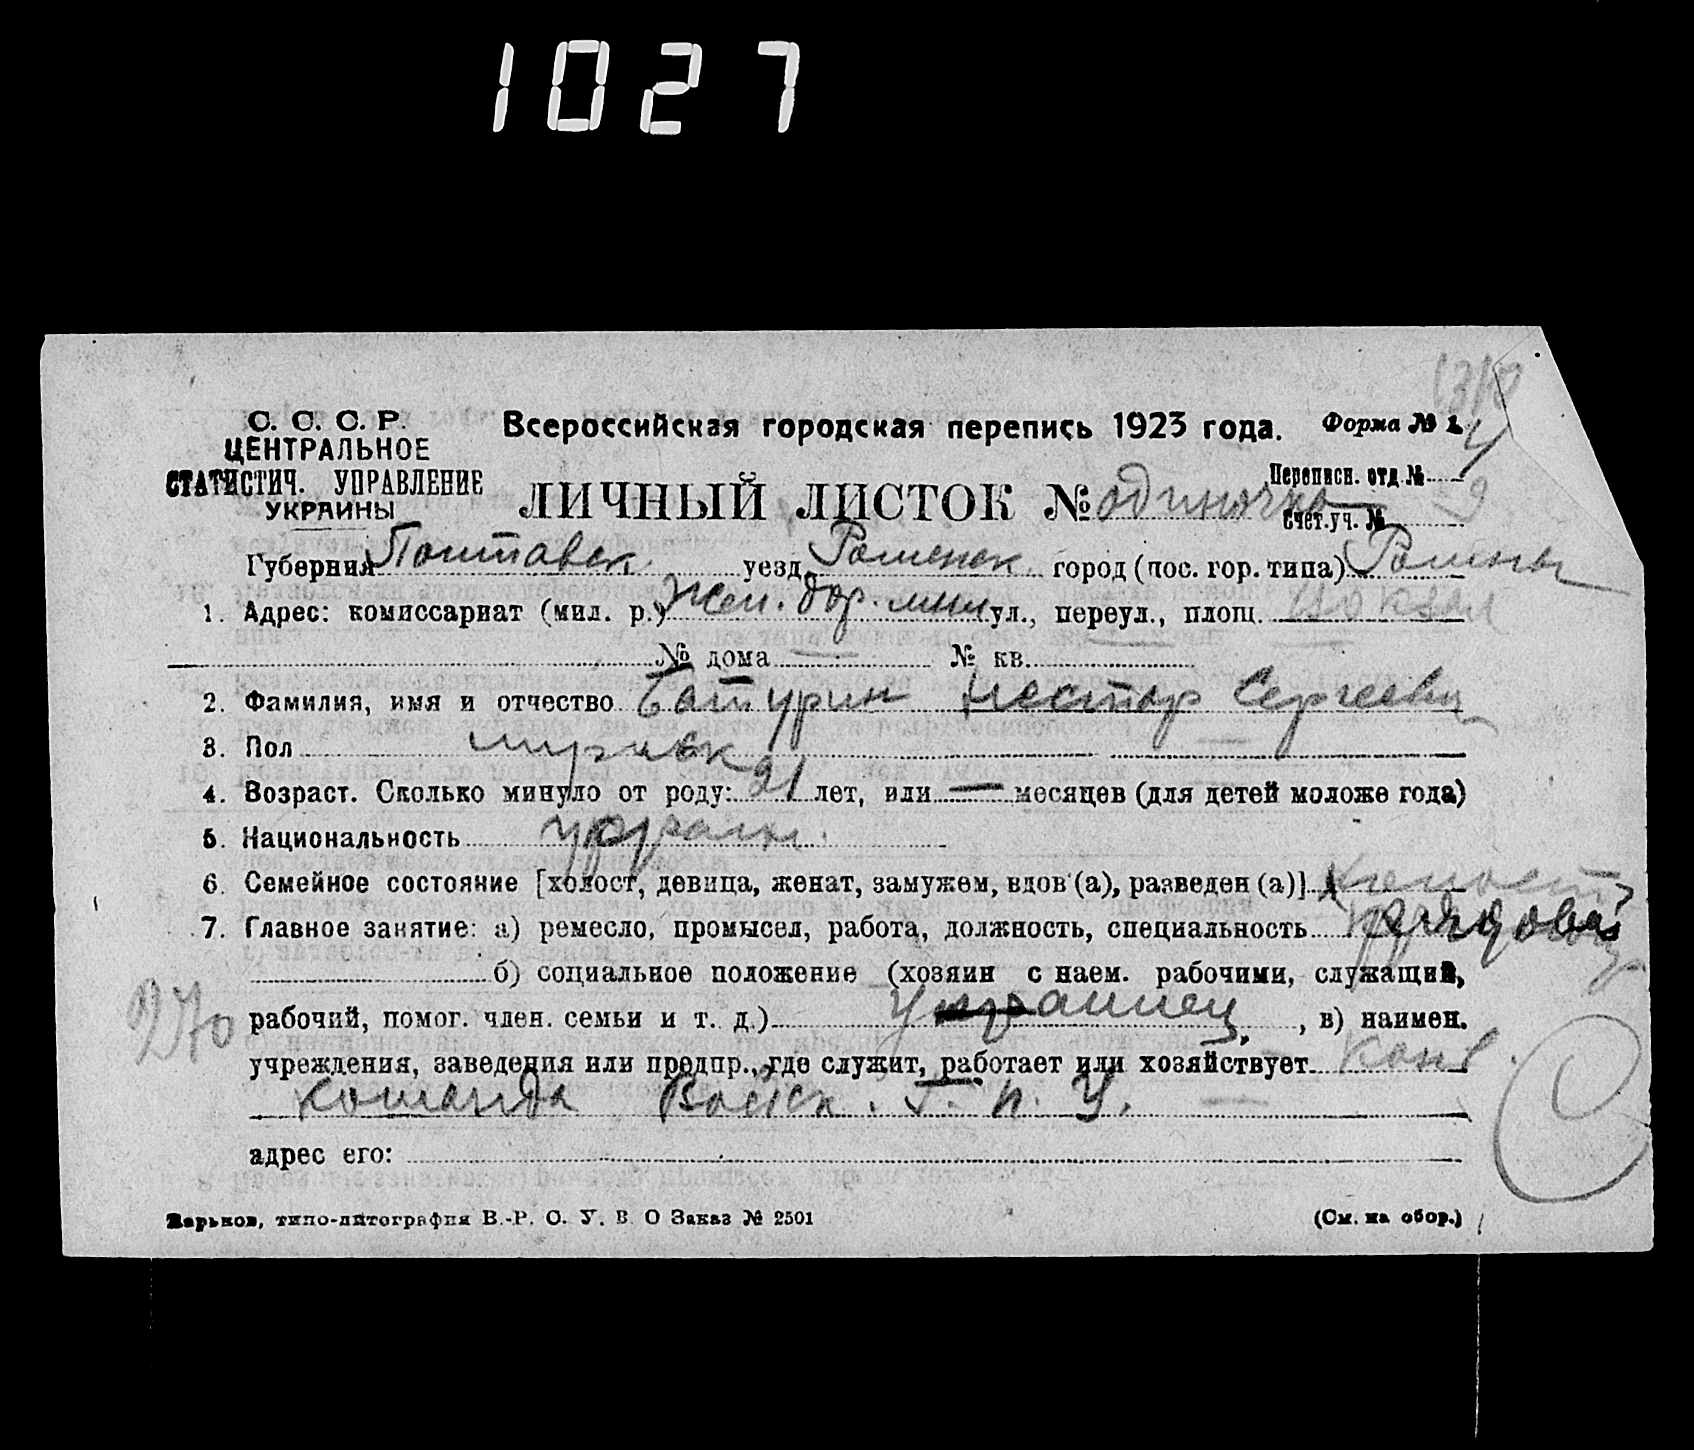 1027
1318
С. С. С. Р.
ЦЕНТРАЛЬНОЕ
СТАТИСТИЧ. УПРАВЛЕНИЕ
УКРАИНЫ
Всероссийская городская перепись 1923 года.
Форма № 1.
ЛИЧНЫЙ ЛИСТОК № одиночка
Переписн. отд. № 4
Счет. уч. № 9
Губерния Полтавск уезд Роменск город (пос. гор. типа) Ромны
1. Адрес: комиссариат (мил. р.) Жел. дор. мил ул., переул., площ. вокзал
№ дома — № кв.
2. Фамилия, имя и отчество Батурин Нестор Сергеевич
3. Пол мужск
4. Возраст. Сколько минуло от роду: 21 лет, или — месяцев (для детей моложе года)
5. Национальность украин.
6. Семейное состояние [холост, девица, женат, замужем, вдов (а), разведен (а)] холост
7. Главное занятие: а) ремесло, промысел, работа, должность, специальность рядовой
б) социальное положение (хозяин с наем. рабочими, служащий,
рабочий, помог. член. семьи и т. д.) , в) наимен.
270
учреждения, заведения или предпр., где служит, работает или хозяйствует Конв
команда Войск. Г. П. У.
адрес его:
Харьков, типо-литография В.-Р. С. У. В. О Заказ № 2501
(См. на обор.)